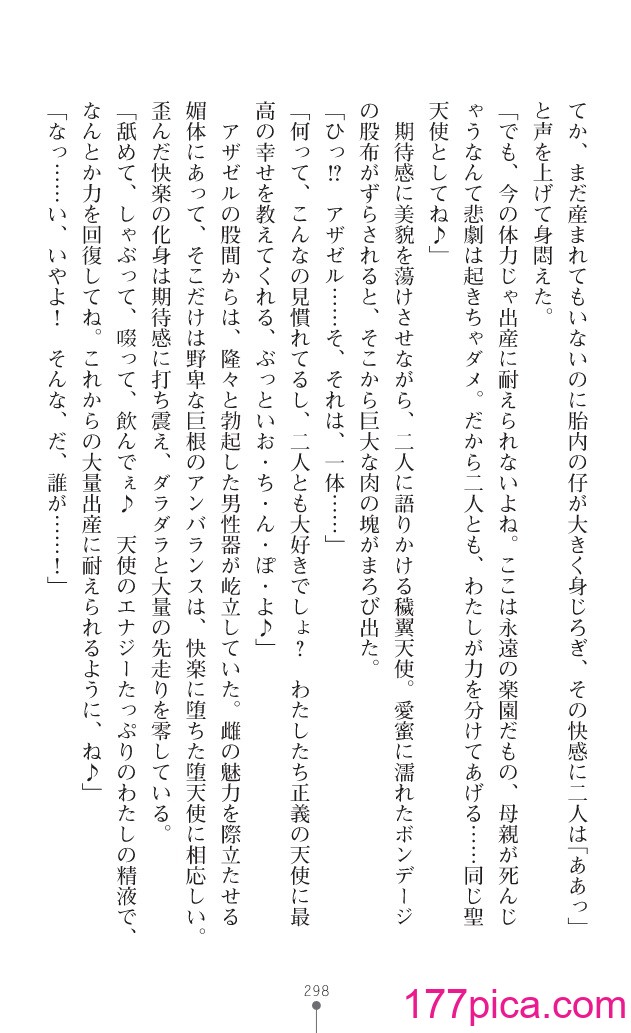 てか、まだ産まれてもいないのに胎内の仔が大きく身じろぎ、その快感に二人は「ああっ」
と声を上げて身悶えた。
「でも、今の体力じゃ出産に耐えられないよね。ここは永遠の楽園だもの、母親が死んじ
ゃうなんて悲劇は起きちゃダメ。だから二人とも、わたしが力を分けてあげる……同じ聖
天使としてね♪」
期待感に美貌を蕩けさせながら、二人に語りかける穢翼天使。愛蜜に濡れたボンデージ
の股布がずらされると、そこから巨大な肉の塊がまろび出た。
「ひっ!?　アザゼル……そ、それは、一体……」
「何って、こんなの見慣れてるし、二人とも大好きでしょ？　わたしたち正義の天使に最
高の幸せを教えてくれる、ぶっといお・ち・ん・ぽ・よ♪」
アザゼルの股間からは、隆々と勃起した男性器が屹立していた。雌の魅力を際立たせる
媚体にあって、そこだけは野卑な巨根のアンバランスは、快楽に堕ちた堕天使に相応しい。
歪んだ快楽の化身は期待感に打ち震え、ダラダラと大量の先走りを零している。
「舐めて、しゃぶって、啜って、飲んでぇ♪　天使のエナジーたっぷりのわたしの精液で、
なんとか力を回復してね。これからの大量出産に耐えられるように、ね♪」
「なっ……い、いやよ！　そんな、だ、誰が……！」
298
177pica.com